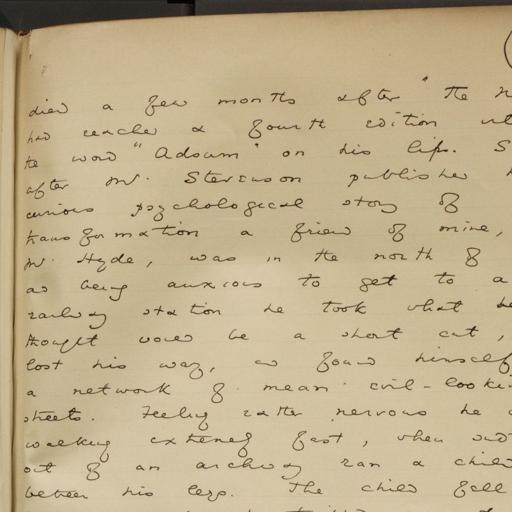 died a few months after "The
had reached a fourth edition
the word "Adsum" on his lips. S
after Mr. Stevenson published
curious psychological story of
transformation a friend of mine,
Mr. Hyde, was in the north of
and being anxious to get to a
railway station he took what he
thought would be a short cut,
lost his way, and found himself
a network of mean evil-looki
streets. Feeling rather nervous he
walking extremely fast, when sud
out of an archway ran a child
between his legs. The child fell